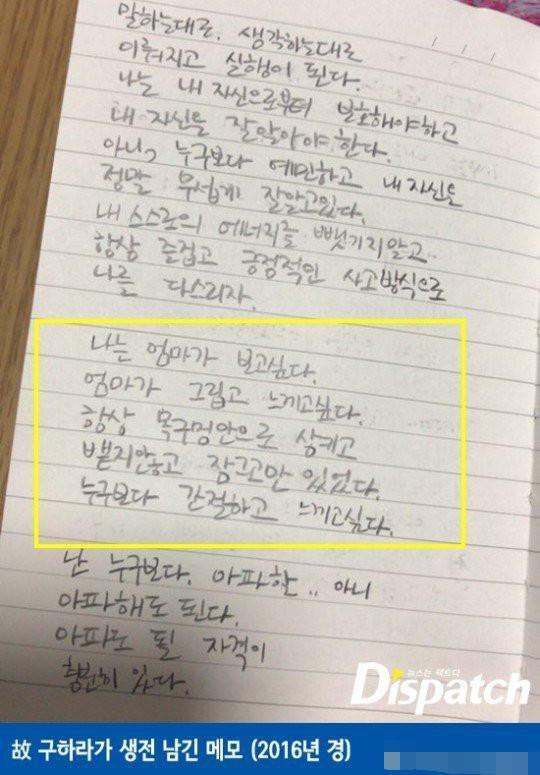 말하는대로. 생각하는대로
이뤄지고 실행이 된다.
나는 내 자신으로부터 보호해야하고
내 자신을 잘알아야 한다.
아니, 누구보다 예민하고 내 자신을
정말 무섭게 잘알고있다.
내 스스로의 에너지를 뺏기지말고
항상 즐겁고 긍정적인 사고방식으로
나를 다스리자.
나는 엄마가 보고싶다.
엄마가 그립고 느끼고싶다.
항상 목구멍안으로 삼키고
뱉지안고 잠그고만 있었다.
누구보다 간절하고 느끼고싶다.
난 누구보다. 아파한.. 아니
아파해도 된다.
아파도 될 자격이
충분히 있다.
뉴스는 팩트다
Dispatch
故 구하라가 생전 남긴 메모 (2016년 경)